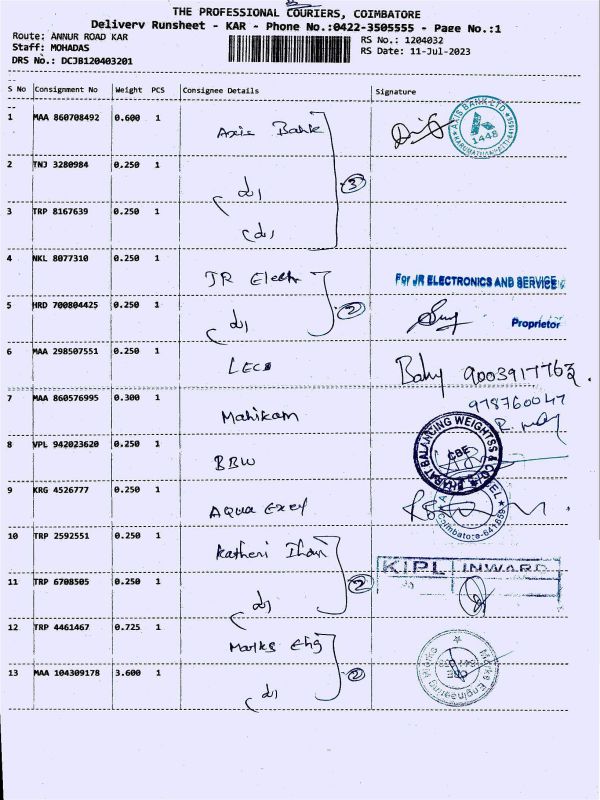 THE PROFESSIONAL COURIERS, COIMBATORE
Delivery Runsheet - KAR - Phone No.:0422-3505555 - Page No.:1
Route: ANNUR ROAD KAR RS No.: 1204032
Staff: MOHADAS RS Date: 11-Jul-2023
DRS No.: DCJB120403201
S No Consignment No Weight PCS Consignee Details Signature
1 MAA 860708492 0.600 1 Axis Bank
AXIS BANK LTD
1448
2 TNJ 3280984 0.250 1
3
3 TRP 8167639 0.250 1
4 NKL 8077310 0.250 1 JR Electr For JR ELECTRONICS AND SERVICE
2
5 HRD 700804425 0.250 1 Proprietor
6 MAA 298507551 0.250 1 LECS Baby 9003917763.
7 MAA 860576995 0.300 1 Mahikam 978760047
8 VPL 942023620 0.250 1 BBW
BHARAT BALANCING WEIGHTSS & CO
CBE
9 KRG 4526777 0.250 1 AQUA EXCEL
Coimbatore-641659
10 TRP 2592551 0.250 1 Katheri
KIPL INWARD
11 TRP 6708505 0.250 1 2
12 TRP 4461467 0.725 1 Marks Eng
Marks Engineering
13 MAA 104309178 3.600 1 2